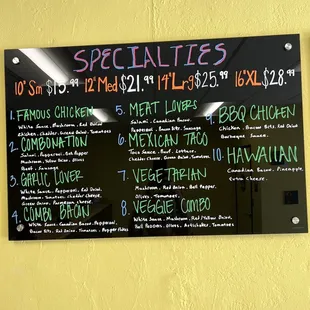 SPECIALTIES
10" Sm $15.99 12" Med $21.99 14" Lrg $25.99 16" XL $28.99
1. FAMOUS CHICKEN
White Sauce, Mushroom, Red Onion
Chicken, Cheddar, Green Onion, Tomatoes
2. COMBONATION
Salami, Pepperoni, Bell Pepper
Mushroom, Yellow Onion, Olives
Beef, Sausage
3. GARLIC LOVER
White Sauce, Pepperoni, Red Onion,
Mushroom, Tomatoes, Cheddar Cheese
Green Onion, Parmesan Cheese
4. COMBI BACON
White Sauce, Canadian Bacon, Pepperoni,
Bacon Bits, Red Onion, Tomatoes, Pepper Flakes
5. MEAT LOVERS
Salami, Canadian Bacon,
Pepperoni, Bacon Bits, Sausage
6. MEXICAN TACO
Taco Sauce, Beef, Lettuce,
Cheddar Cheese, Green Onion, Tomatoes
7. VEGETARIAN
Mushroom, Red Onion, Bell Pepper,
Olives, Tomatoes
8 VEGGIE COMBO
White Sauce, Mushroom, Red/Yellow Onion,
Bell Peppers, Olives, Artichokes, Tomatoes
9. BBQ CHICKEN
Chicken, Bacon Bits, Red Onion
Barbeque Sauce
10. HAWAIIAN
Canadian Bacon, Pineapple,
Extra Cheese